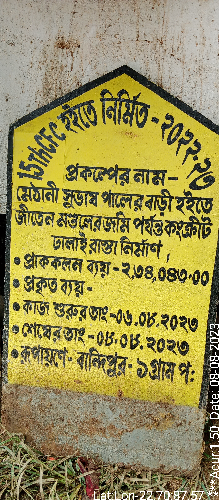 15TH CFC হইতে নির্মিত - ২০২২-২৩
প্রকল্পের নাম -
মেঠানী সুভাষ পালের বাড়ী হইতে
জীতেন মণ্ডলের জমি পর্যন্ত কংক্রীট
ঢালাই রাস্তা নির্মাণ।
• প্রাককলন ব্যয় - ২,৩৪,০৪৩.০০
• প্রকৃত ব্যয় -
• কাজ শুরুর তাং - ০৬.০৮.২০২৩
• শেষের তাং - ০৮.০৮.২০২৩
• রূপায়ণে - বান্দিপুর - ১ গ্রাম পঃ
Date: 08-08-2023
Lat Lon - 22.70.87.5